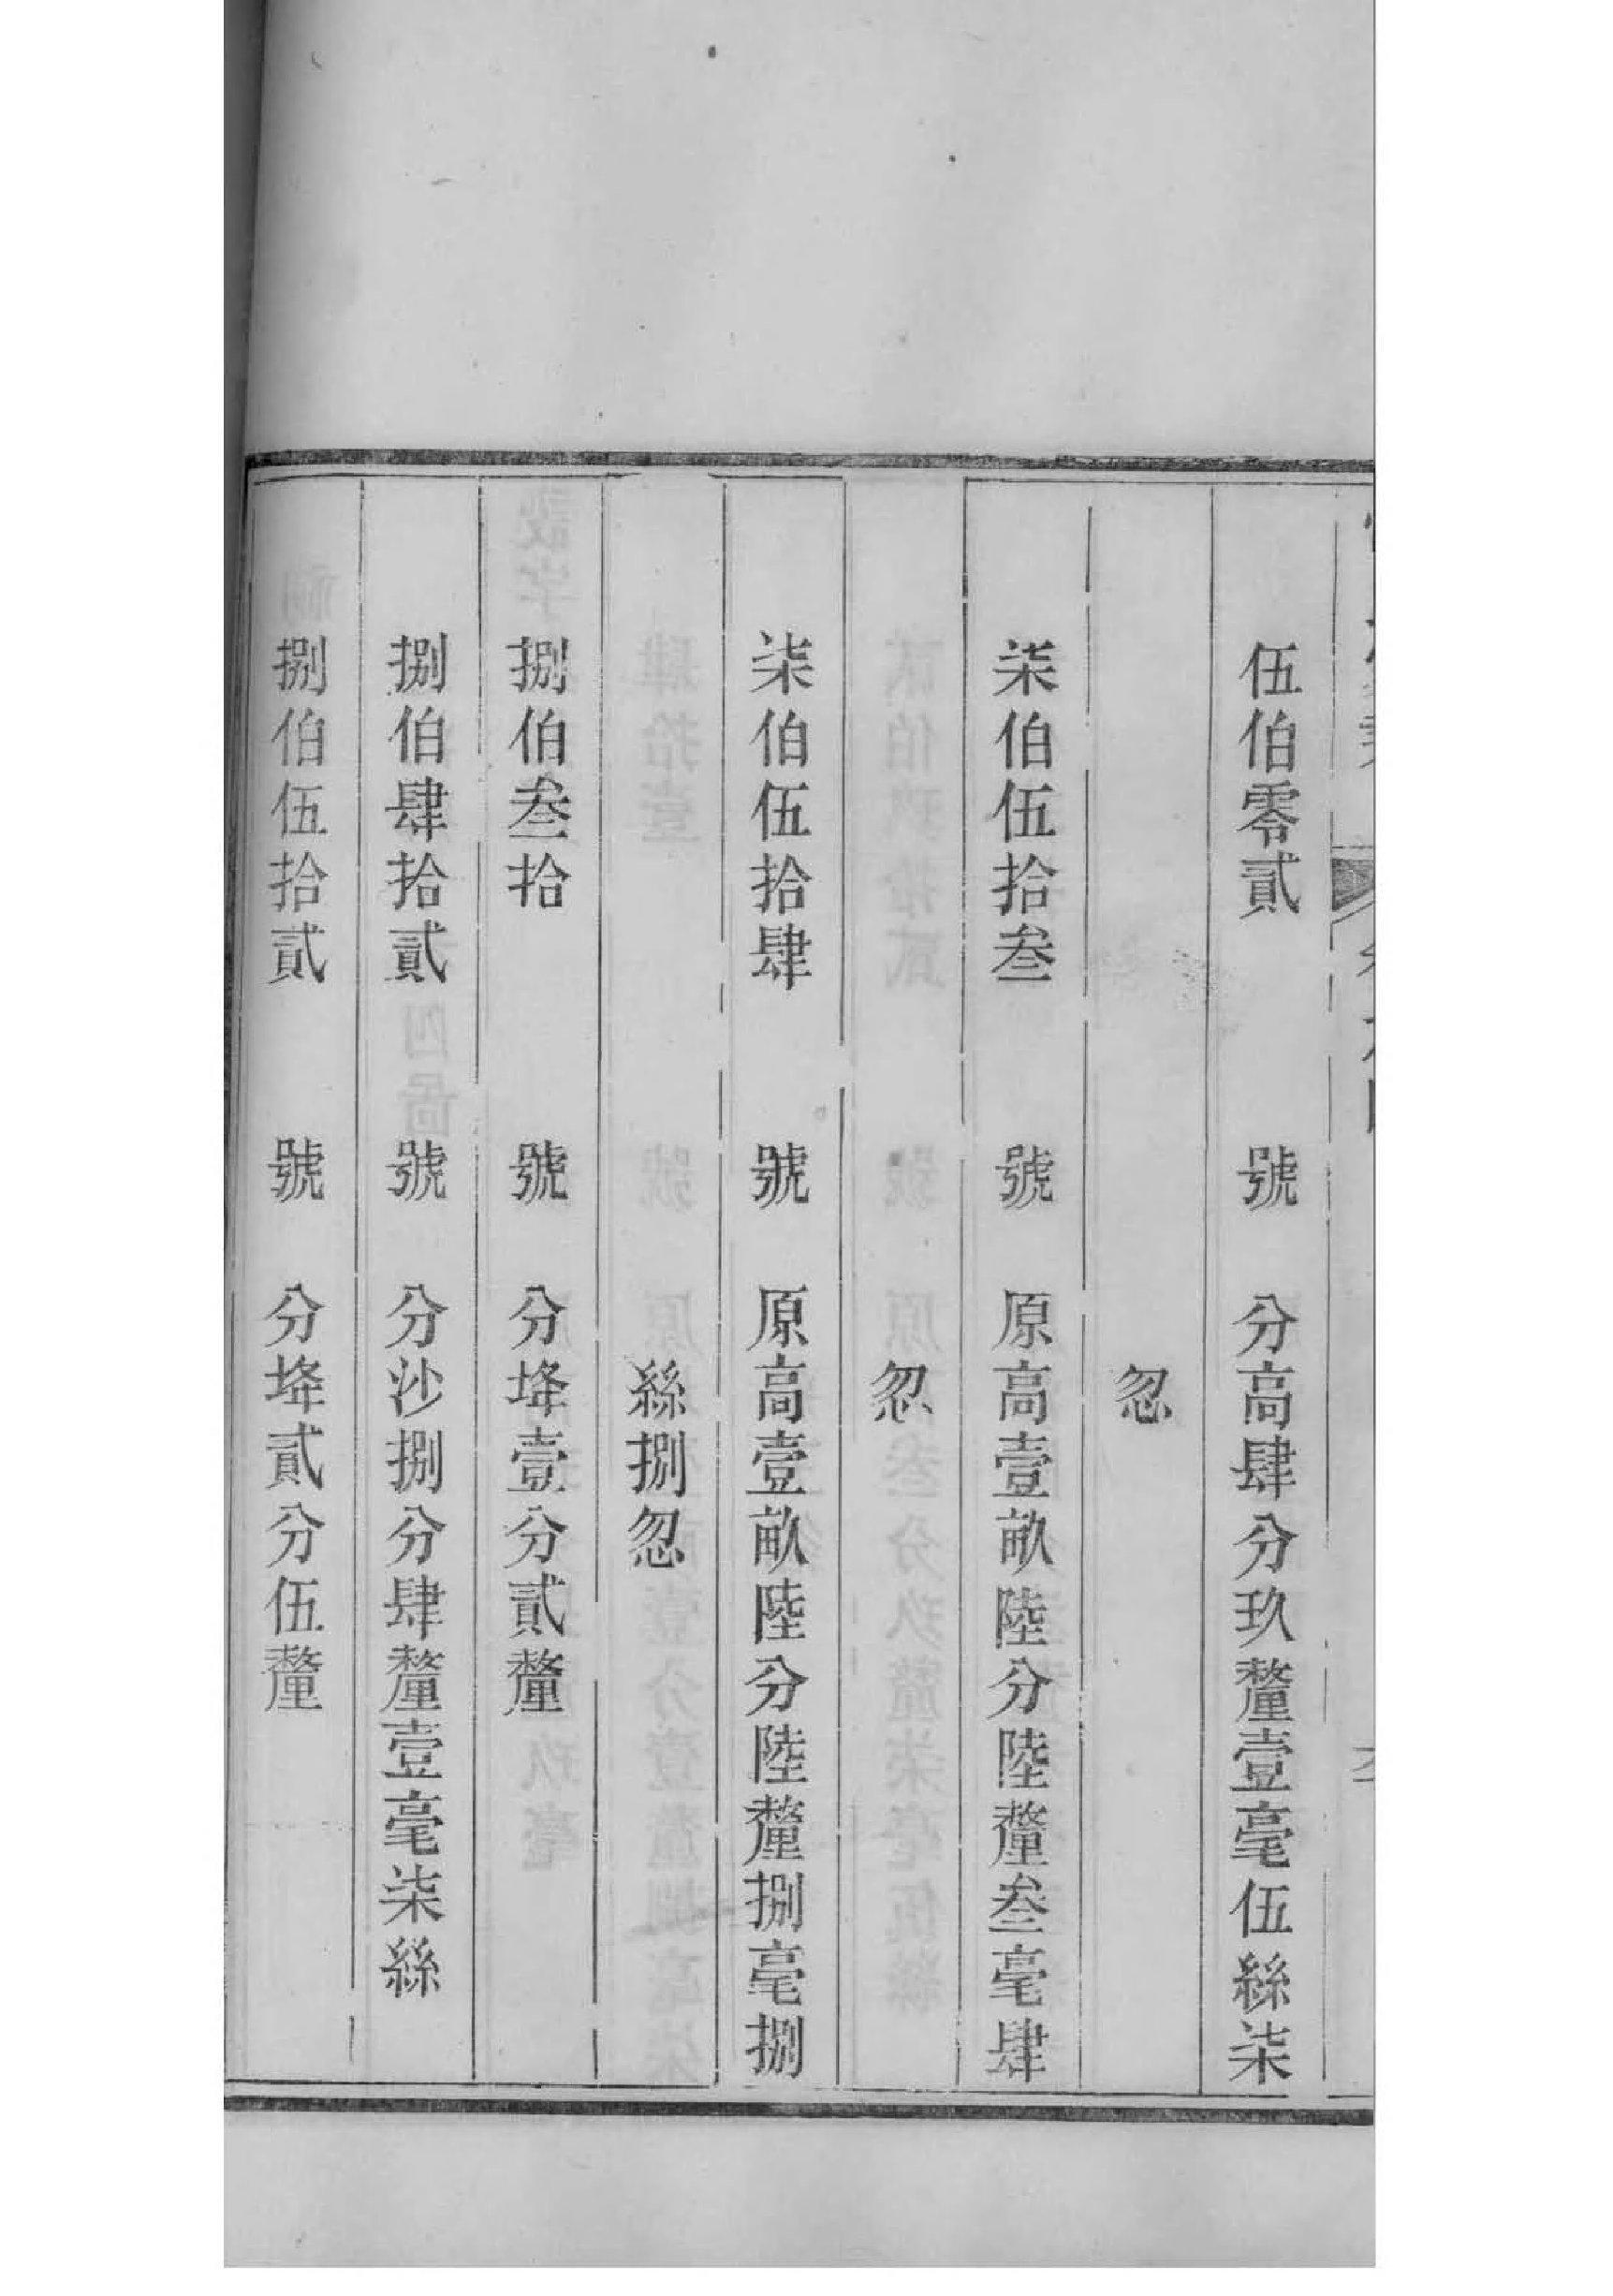 伍伯零貳　號　分高肆分玖釐壹毫伍絲柒
忽
柒伯伍拾叁　號　原高壹畝陸分陸釐叁毫肆
忽
柒伯伍拾肆　號　原高壹畝陸分陸釐捌毫捌
絲捌忽
捌伯叁拾　號　分埄壹分貳釐
捌伯肆拾貳　號　分沙捌分肆釐壹毫柒絲
捌伯伍拾貳　號　分埄貳分伍釐